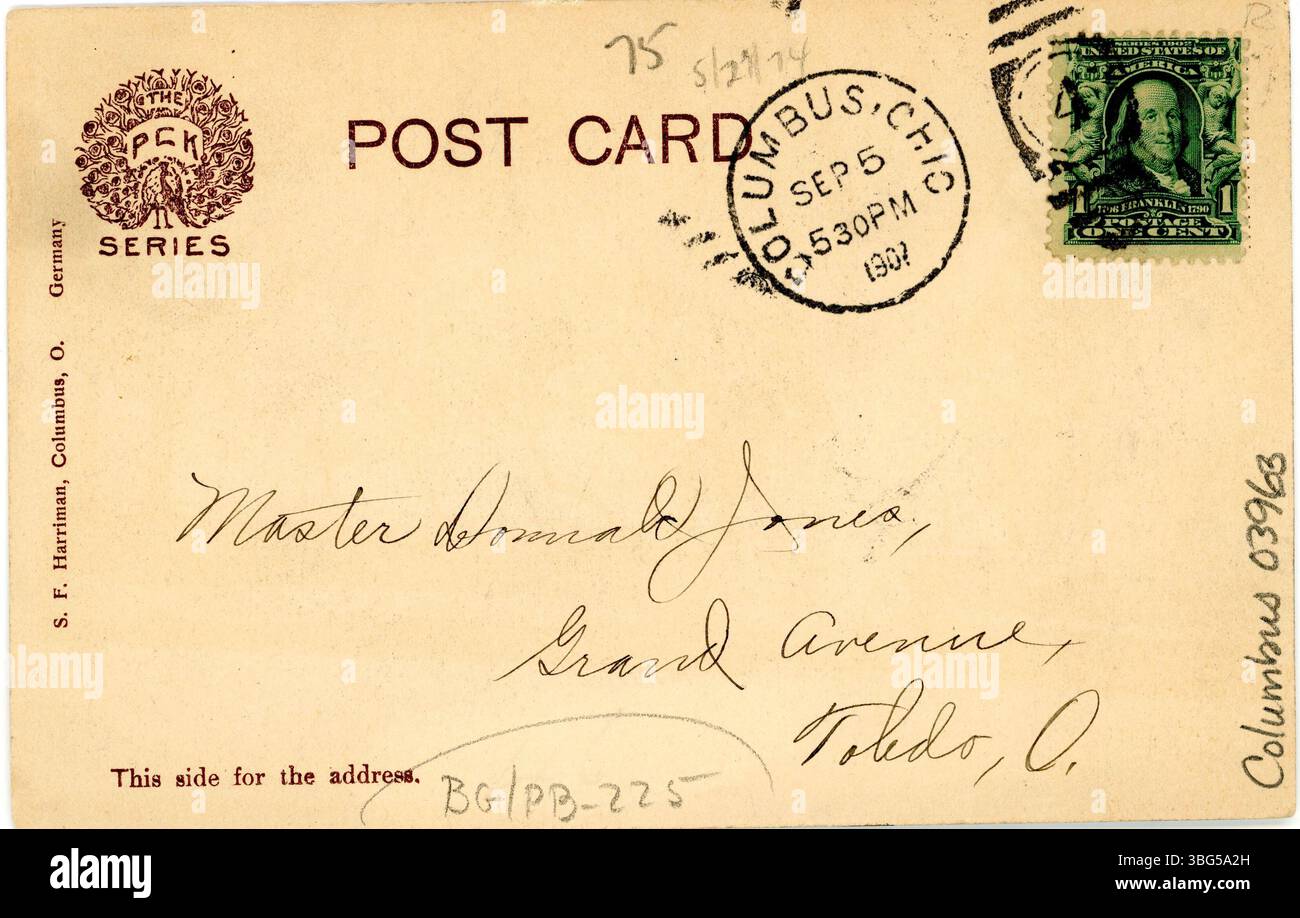 75
5/27/74
R
THE
PCK
SERIES
POST CARD
COLUMBUS, OHIO
SEP 5
530PM
1907
4
SERIES 1902
UNITED STATES OF
AMERICA
1706 FRANKLIN 1790
POSTAGE
1 ONE CENT 1
S. F. Harriman, Columbus, O. Germany
Master Donnald Jones,
Grand Avenue,
Toledo, O.
This side for the address.
BG/PB-225
Columbus 0396B
alamy
Image ID: 3BG5A2H
www.alamy.com